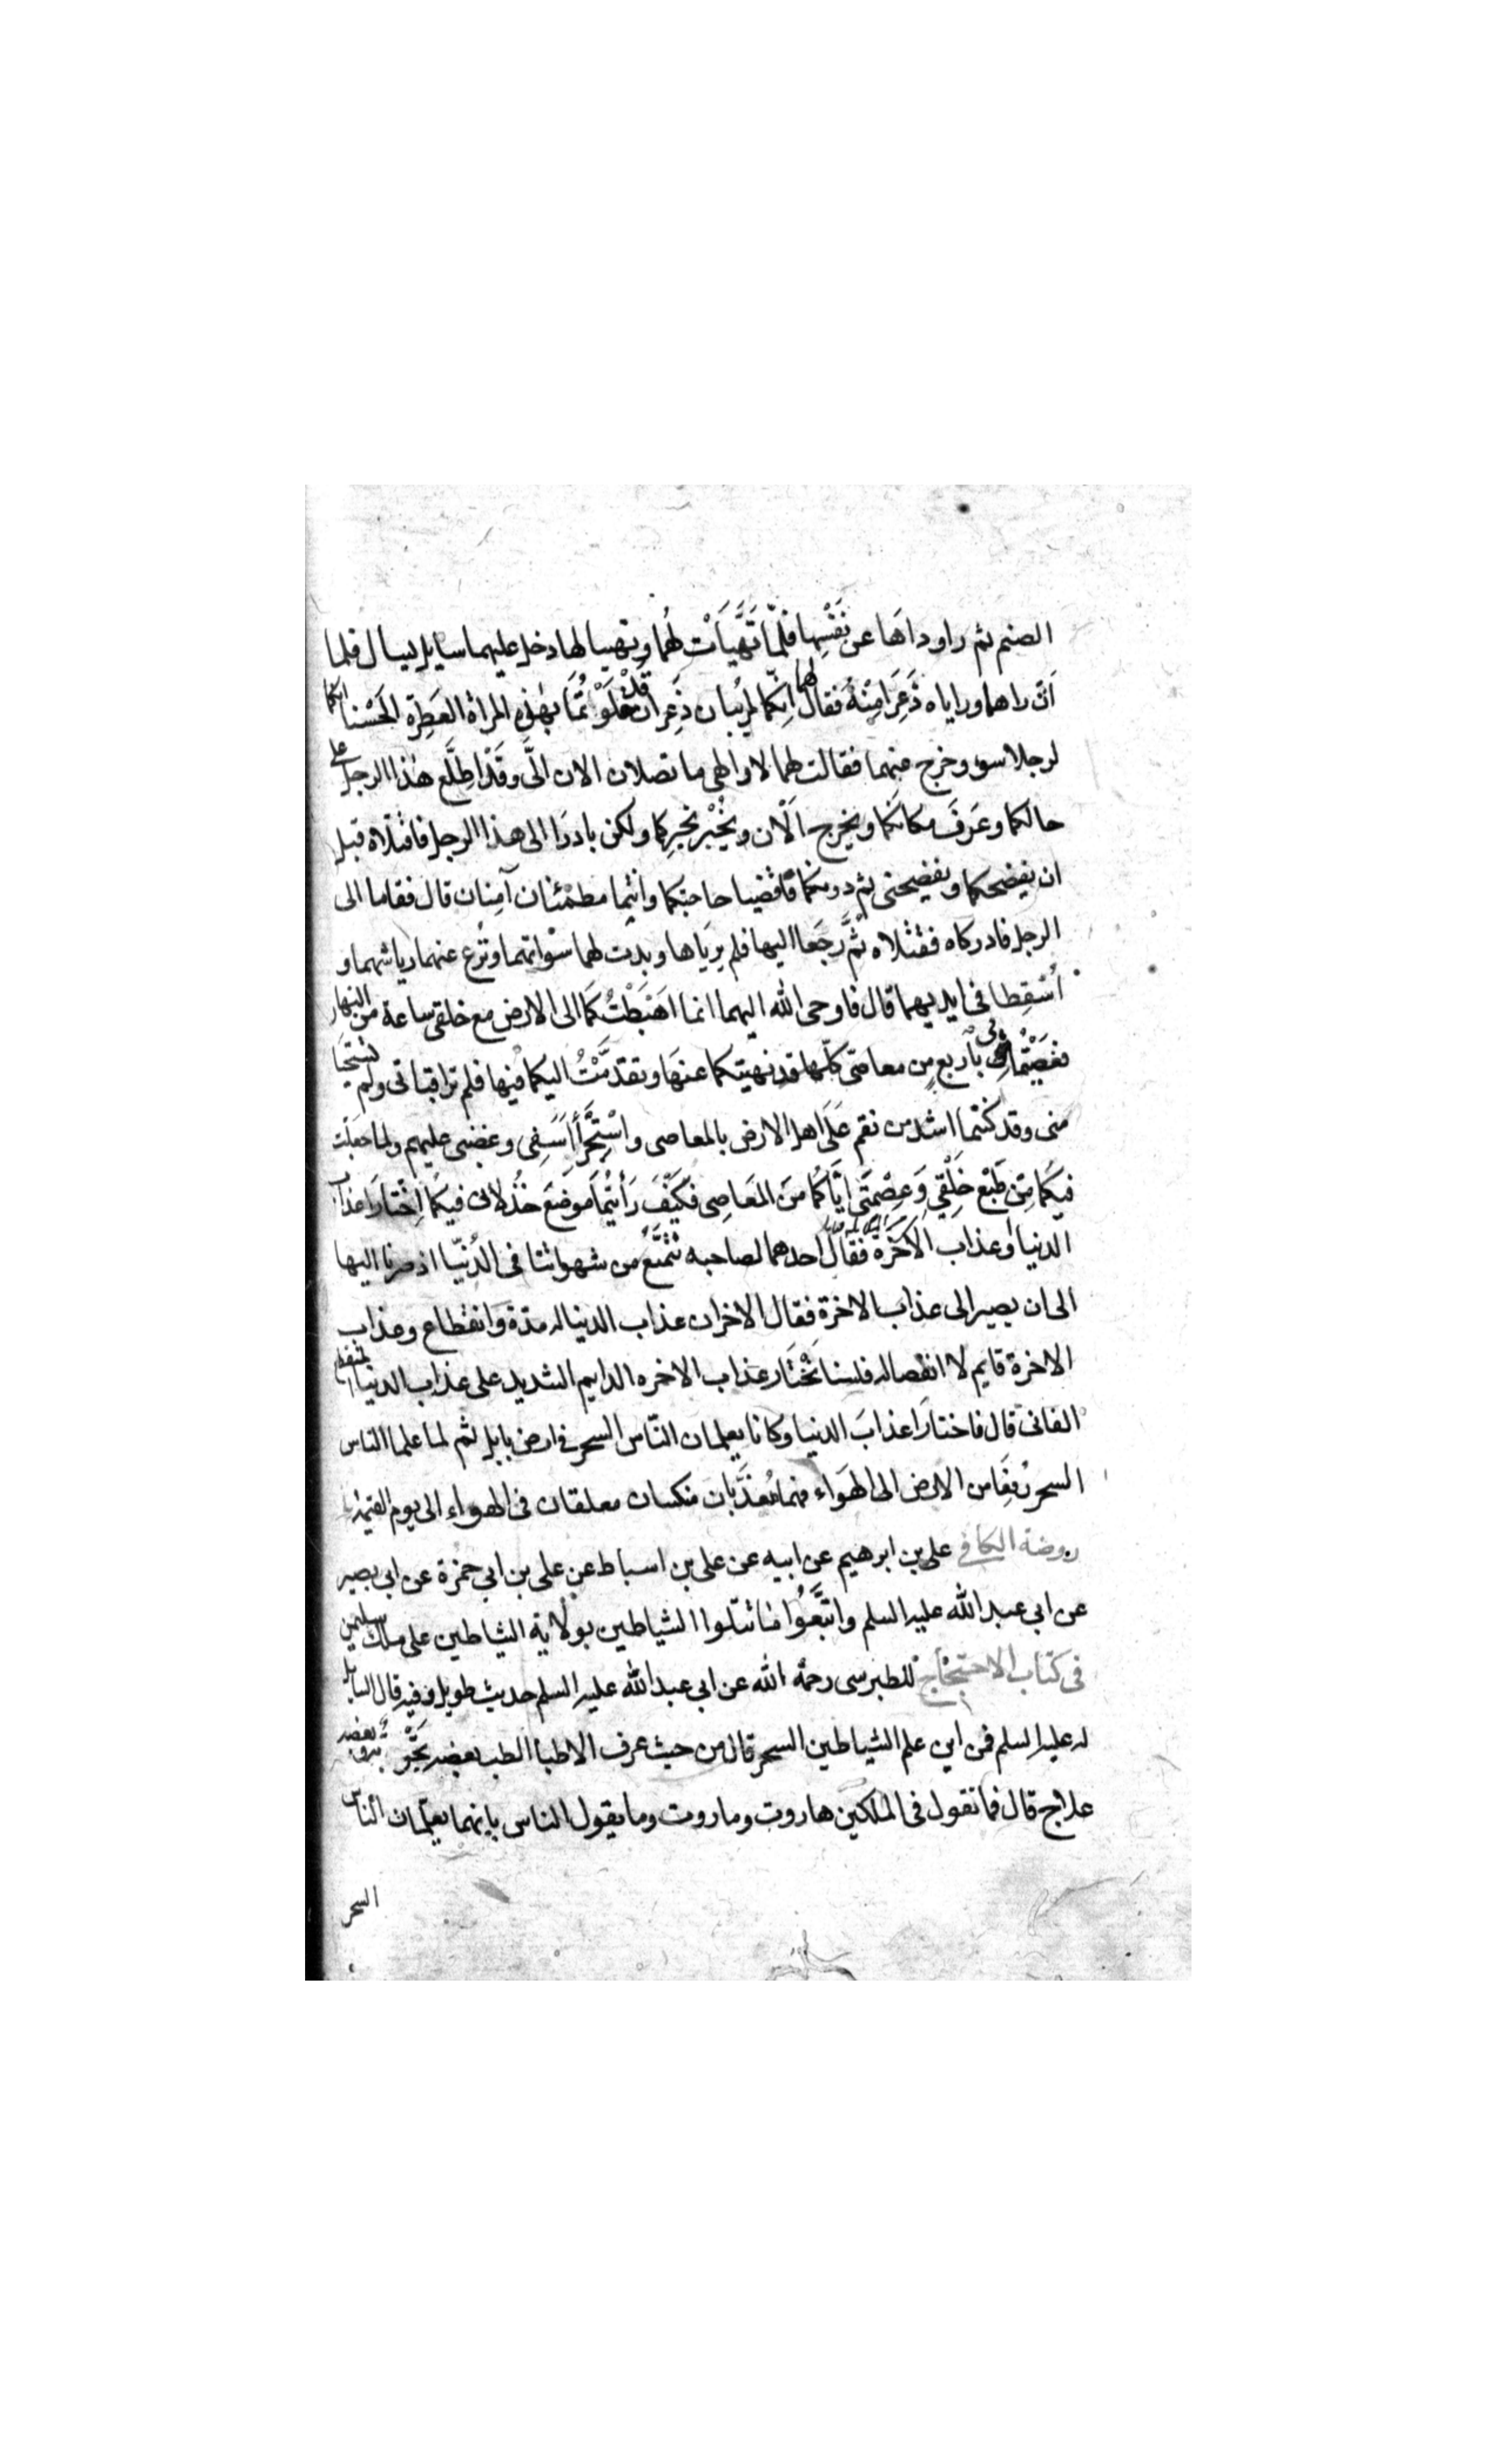 الصنم ثم راوداها عن نَفْسِها فلمّا تَهَيَّأَتْ لهُما وتهييا لها دخل عليهما سايل يسال فلما
اَنْ راهما وراياه ذَعِرَا مِنْهُ فقال لهما انكما لمريبان ذَعِران قد خَلَوْتُمَا بهٰذه المراة العَطِرَة الحَسْنا انكما
لرجلا سوء وخرج عنهما فقالت لهما لا والهى ما تصلان الان الىَّ وقَدْ اطلَّع هٰذا الرجل على
حالكما وعَرفَ مكانكما ويخرج اَلْان ويُخْبِر بخبركما ولكن بادرَا الى هذا الرجل فاقتلاه قبل
ان يفضحكما ويفضحنى ثم دونكما فاقضيا حاجتكما وانتما مطمئنان آمنان قال فقاما الى
الرجل فادركاه فقتلاه ثُمَّ رجَعا اليها فلم يرياها وبدت لهما سَوْاتهما ونُزع عنهما رياشهما و
أُسْقِطا فى ايديهما قال فاوحى الله اليهما انما اهَبَطْتُكما الى الارض مع خلقى ساعة من النهار
فعَصَيْتُمانى بأربع من معاصىّ كلّها قد نهيتكما عنهَا وتقدّمْتُ اليكما فيها فلم تراقبانى ولم تستحيا
منى وقد كنتما اشد من نقم عَلَى اهل الارض بالمعاصى واسْتِجرَّأ أسَفِى وغضبى عليهم ولما جعلت
فيكُما مِنْ طَبْع خَلْقي وَعِصْمَتى ايّاكُما منَ المَعَاصِى فكَيْفَ رَأَيْتُما موضَعَ خذلانى فيكما اِخْتارَا عذاب
الدنيا او عذاب الاخرة فقال احدهما لصاحبه نَتَمتَّع من شهواتنا فى الدُنيّا اذ صرنا اليها
الى ان يصير الى عذاب الاخرة فقال الاخر ان عذاب الدنيا له مدّة وَانقطاع وعذاب
الاخرة قايم لا انقصا له فلسنا نَخْتَار عذاب الاخره الدايم الشديد على عذاب الدنيا المنقطع
الفانى قال فاختارَا عذابَ الدنيا وكانا يعلمان النّاس السحر فى ارض بابل ثم لما علما الناس
السحر رُفِعَا من الارض الى الهَوَاء فهما مُعَذَّبان منكسان معلقان فى الهواء الى يوم القيمة
روضة الكافى على بن ابرهيم عن ابيه عن على بن اسباط عن على بن ابي حمزة عن ابي بصير
عن ابي عبد الله عليه السلم واتبَّعُوا ما تتلوا الشياطين بولاية الشياطين على ملك سليمن
فى كتاب الاحتجاج للطبرسى رحمة الله عن ابي عبد الله عليه السلم حديث طويل وفيه قال السايل
له عليه السلم فمن اين علم الشياطين السحر قال من حيث عرف الاطبا الطب بعضه تجربة وبعضه
علاج قال فما تقول فى الملكين هاروت وماروت وما يقول الناس بانهما يعلمان الناس
السحر